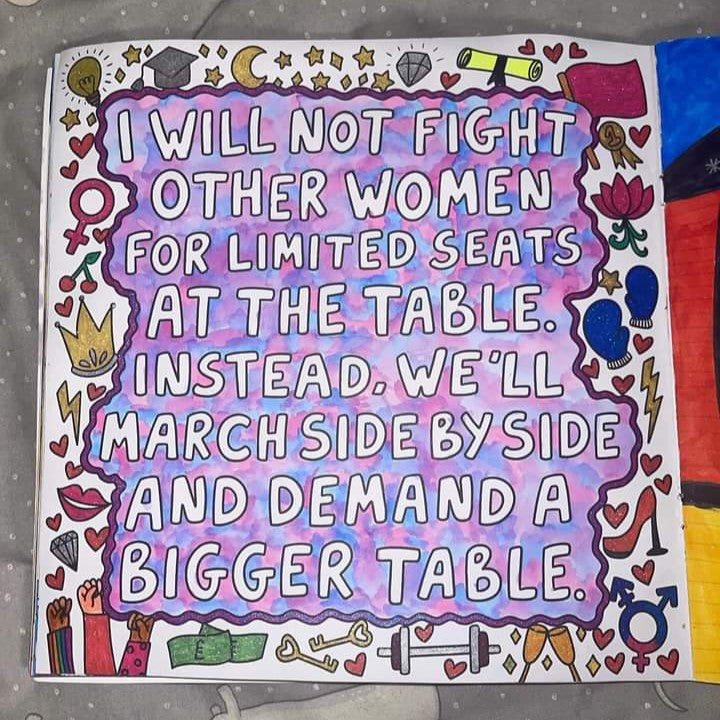 I WILL NOT FIGHT
OTHER WOMEN
FOR LIMITED SEATS
AT THE TABLE.
INSTEAD, WE'LL
MARCH SIDE BY SIDE
AND DEMAND A
BIGGER TABLE.
1
£ £